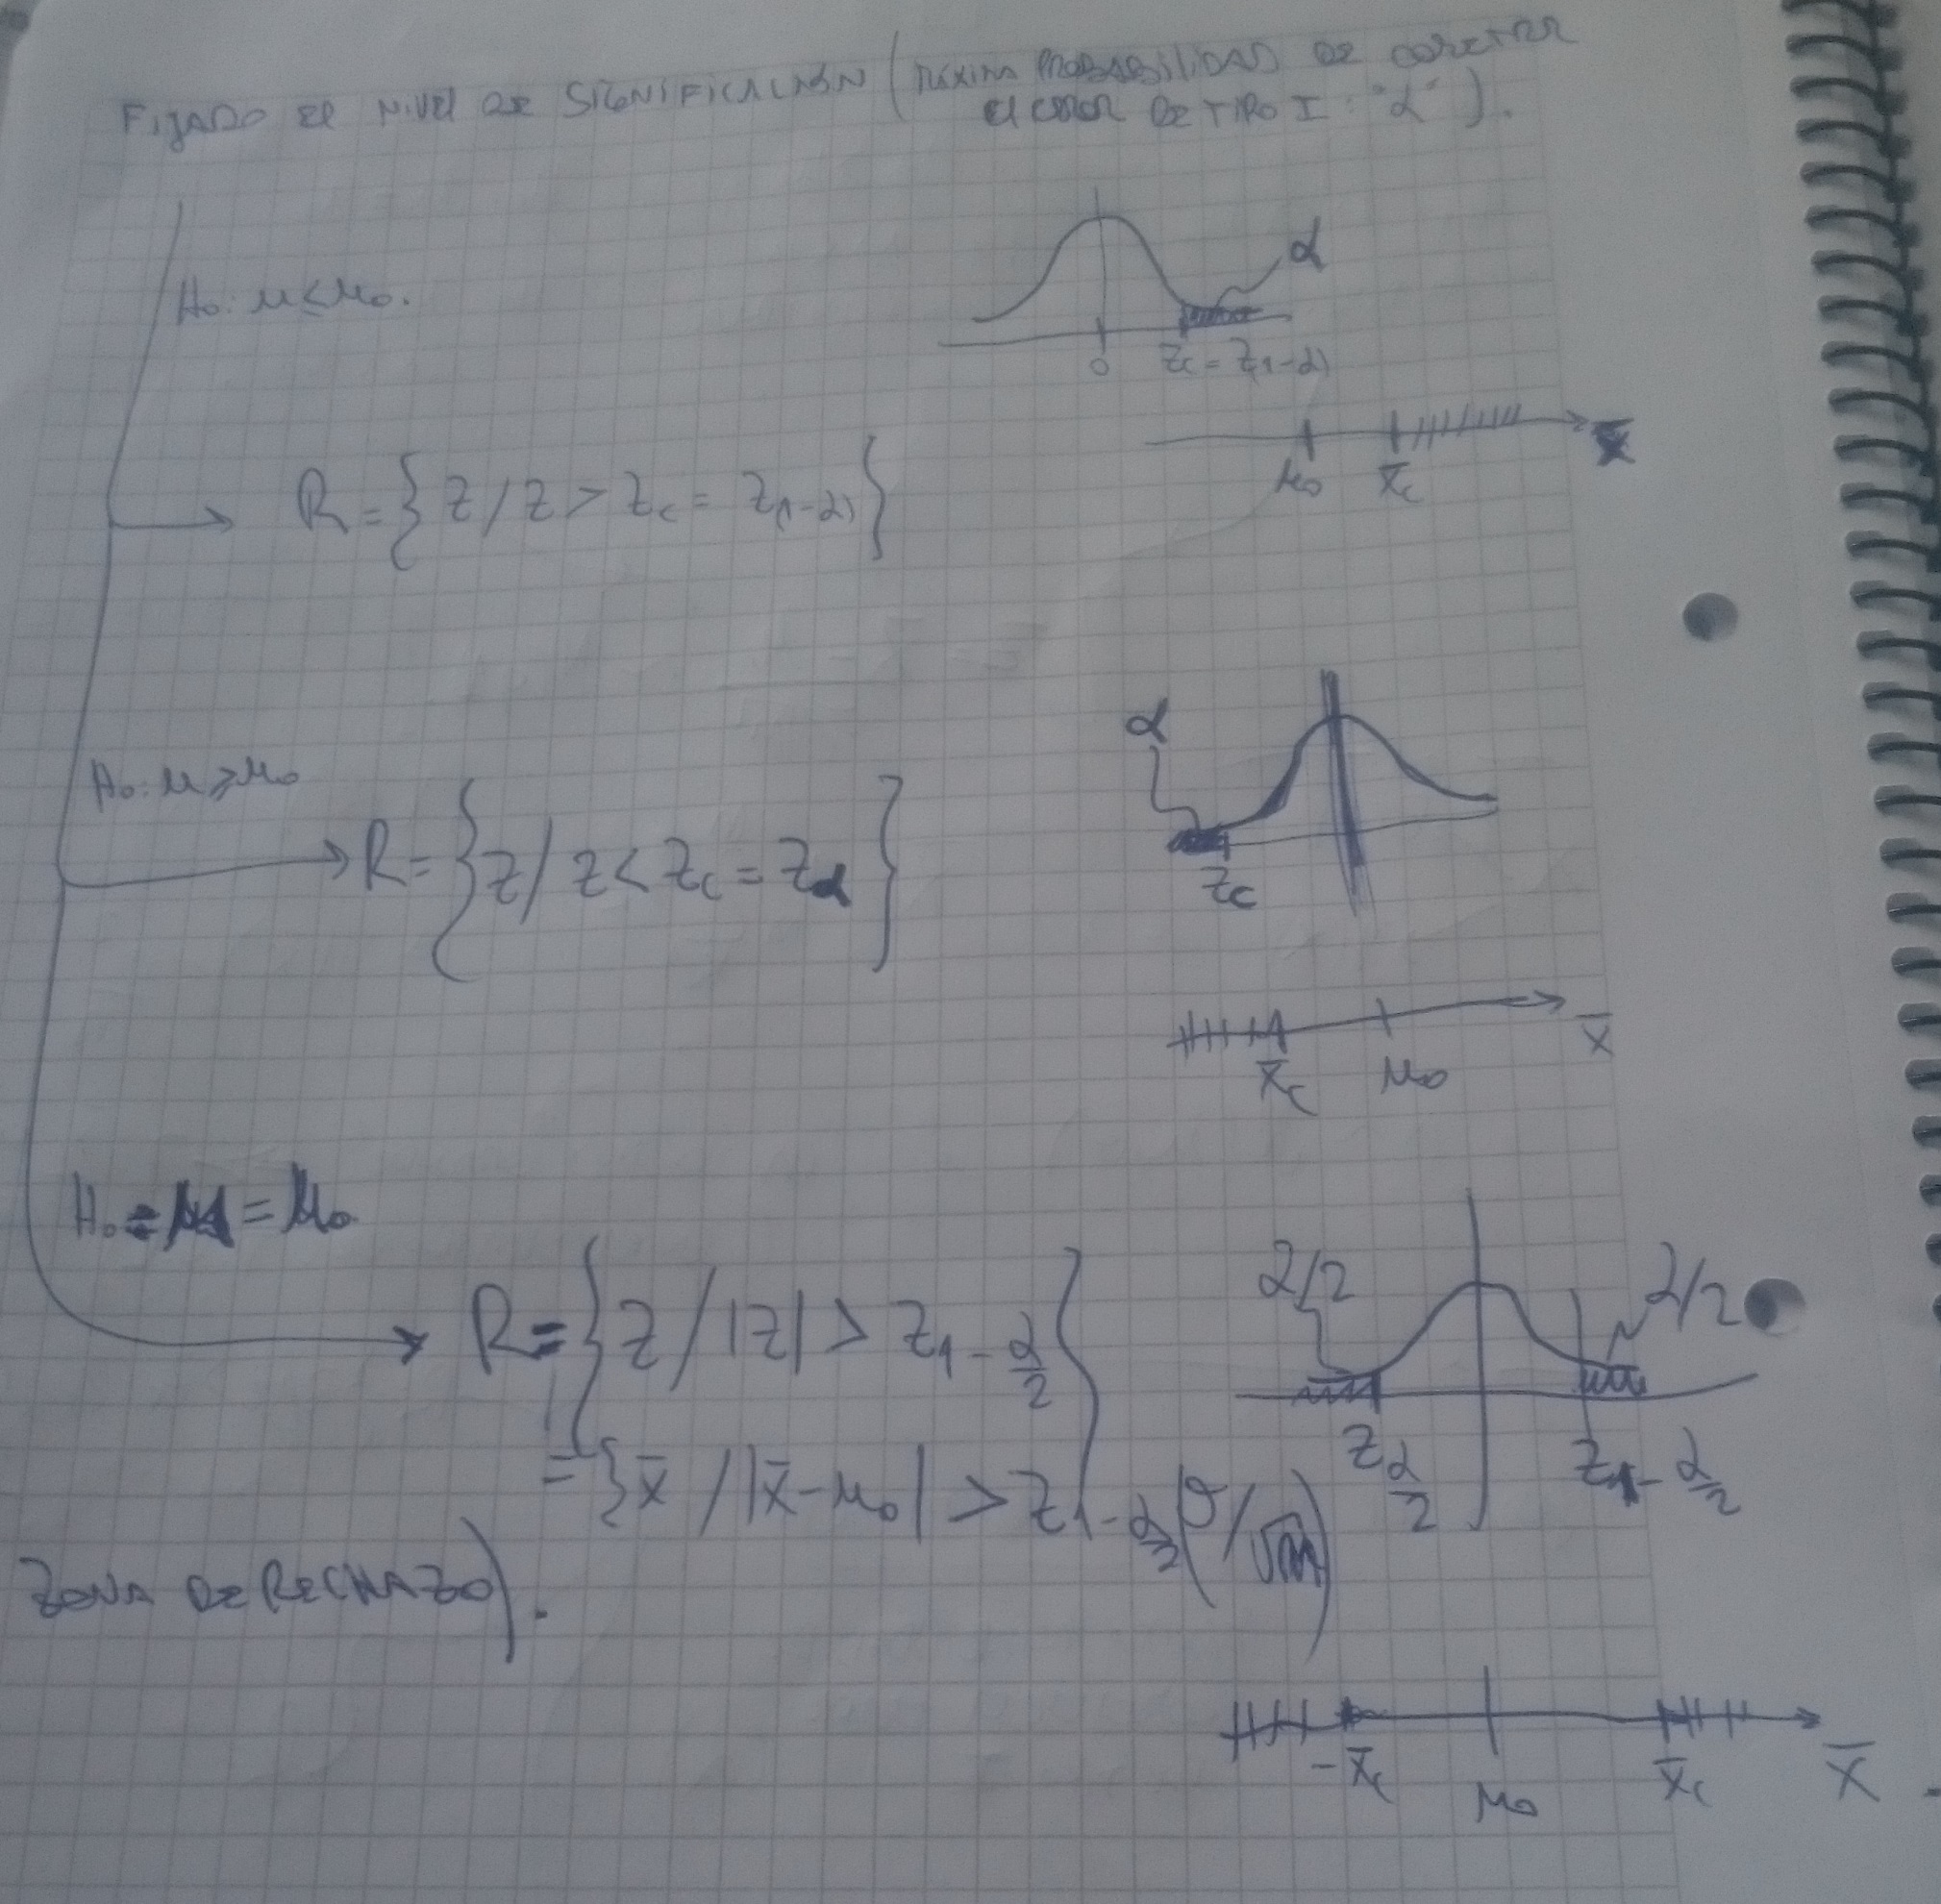 Fijado el nivel de significación (máxima probabilidad de cometer
el error de tipo I: "α").
H₀: μ ≤ μ₀.
R = { z / z > z_c = z_{1-α} }
α
0 z_c = z_{1-α}
μ₀ x̄_c x̄
H₀: μ ≥ μ₀
R = { z / z < z_c = z_α }
α
z_c
x̄_c μ₀ x̄
H₀ = μ = μ₀
R = { z / |z| > z_{1-α/2} }
α/2 α/2
z_{α/2} z_{1-α/2}
= { x̄ / |x̄ - μ₀| > z_{1-α/2} (σ/√n)
-x̄_c μ₀ x̄_c x̄
zona de rechazo).